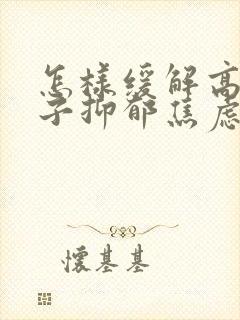 怎样缓解高
子抑郁焦虑
懷基基